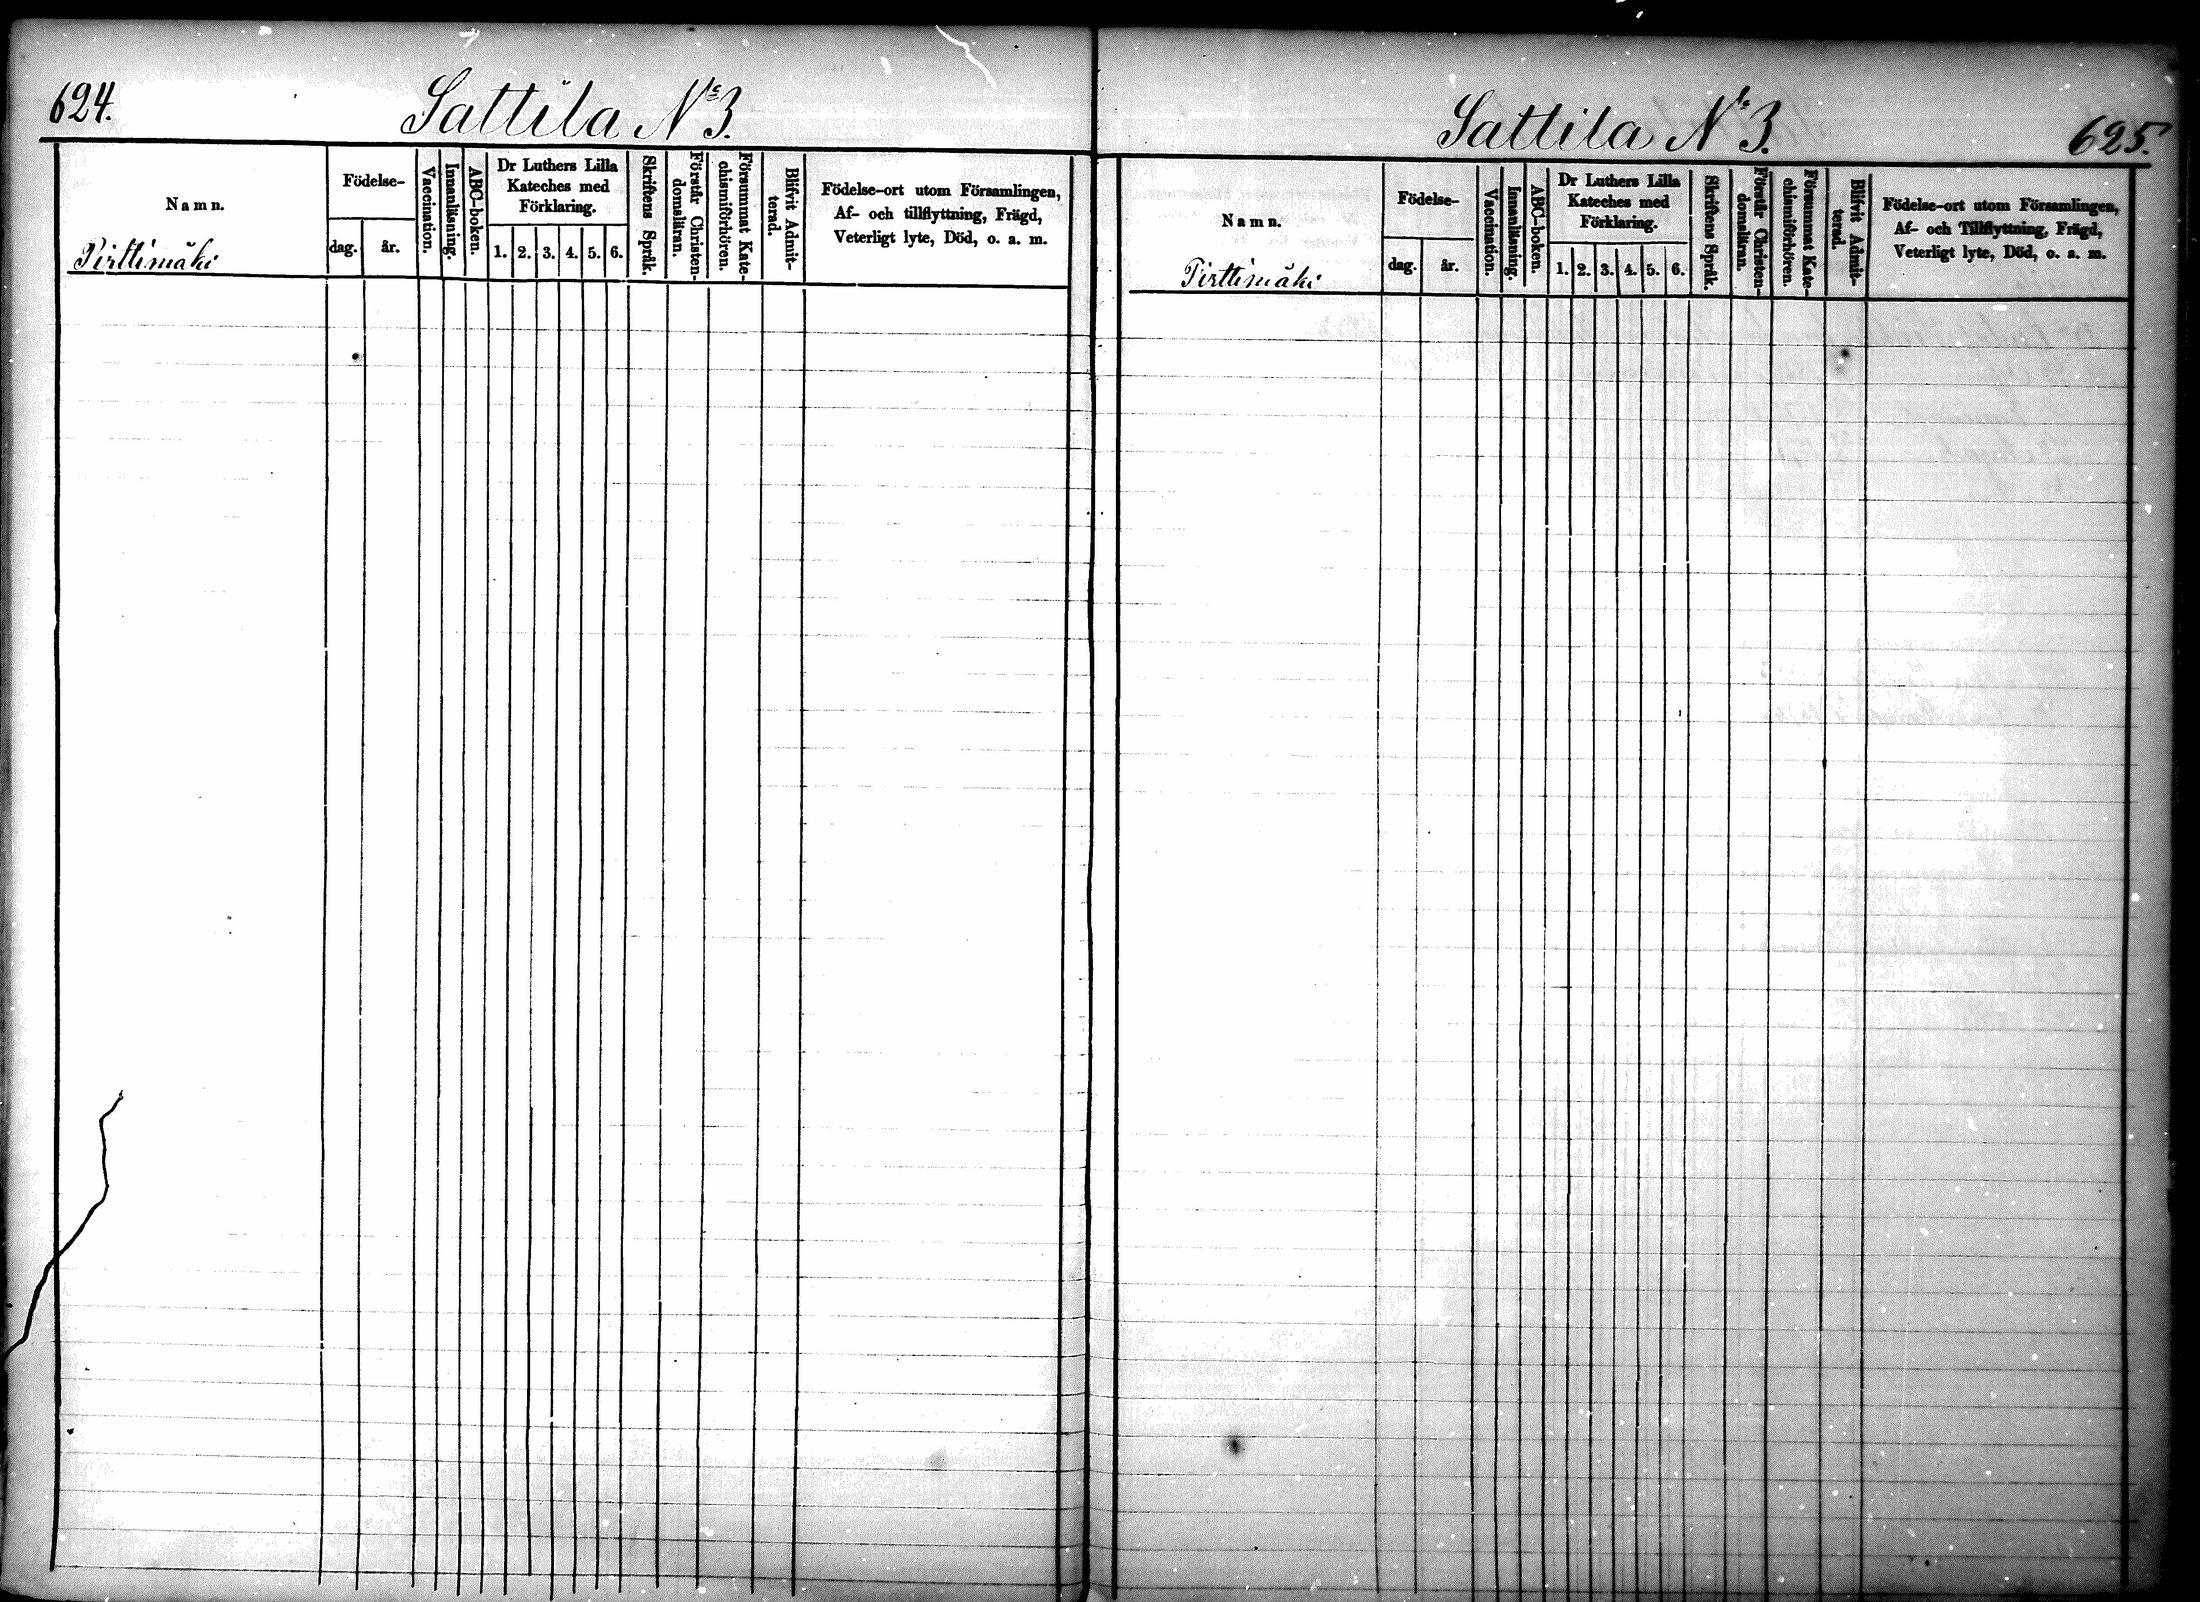 624. Sattila No 3.
Namn.
Pirttimäki
Födelse-
dag. år.
Vaccination.
Innanläsning.
ABC-boken.
Dr Luthers Lilla
Kateches med
Förklaring.
1. 2. 3. 4. 5. 6.
Skriftens Språk.
Förstår Christen-
domsläran.
Försummat Kate-
chismiförhören.
Blifvit Admit-
terad.
Födelse-ort utom Församlingen,
Af- och tillflyttning, Frägd,
Veterligt lyte, Död, o. a. m.
Sattila No 3. 625.
Namn.
Pirttimäki
Födelse-
dag. år.
Vaccination.
Innanläsning.
ABC-boken.
Dr Luthers Lilla
Kateches med
Förklaring.
1. 2. 3. 4. 5. 6.
Skriftens Språk.
Förstår Christen-
domsläran.
Försummat Kate-
chismiförhören.
Blifvit Admit-
terad.
Födelse-ort utom Församlingen,
Af- och Tillflyttning, Frägd,
Veterligt lyte, Död, o. a. m.